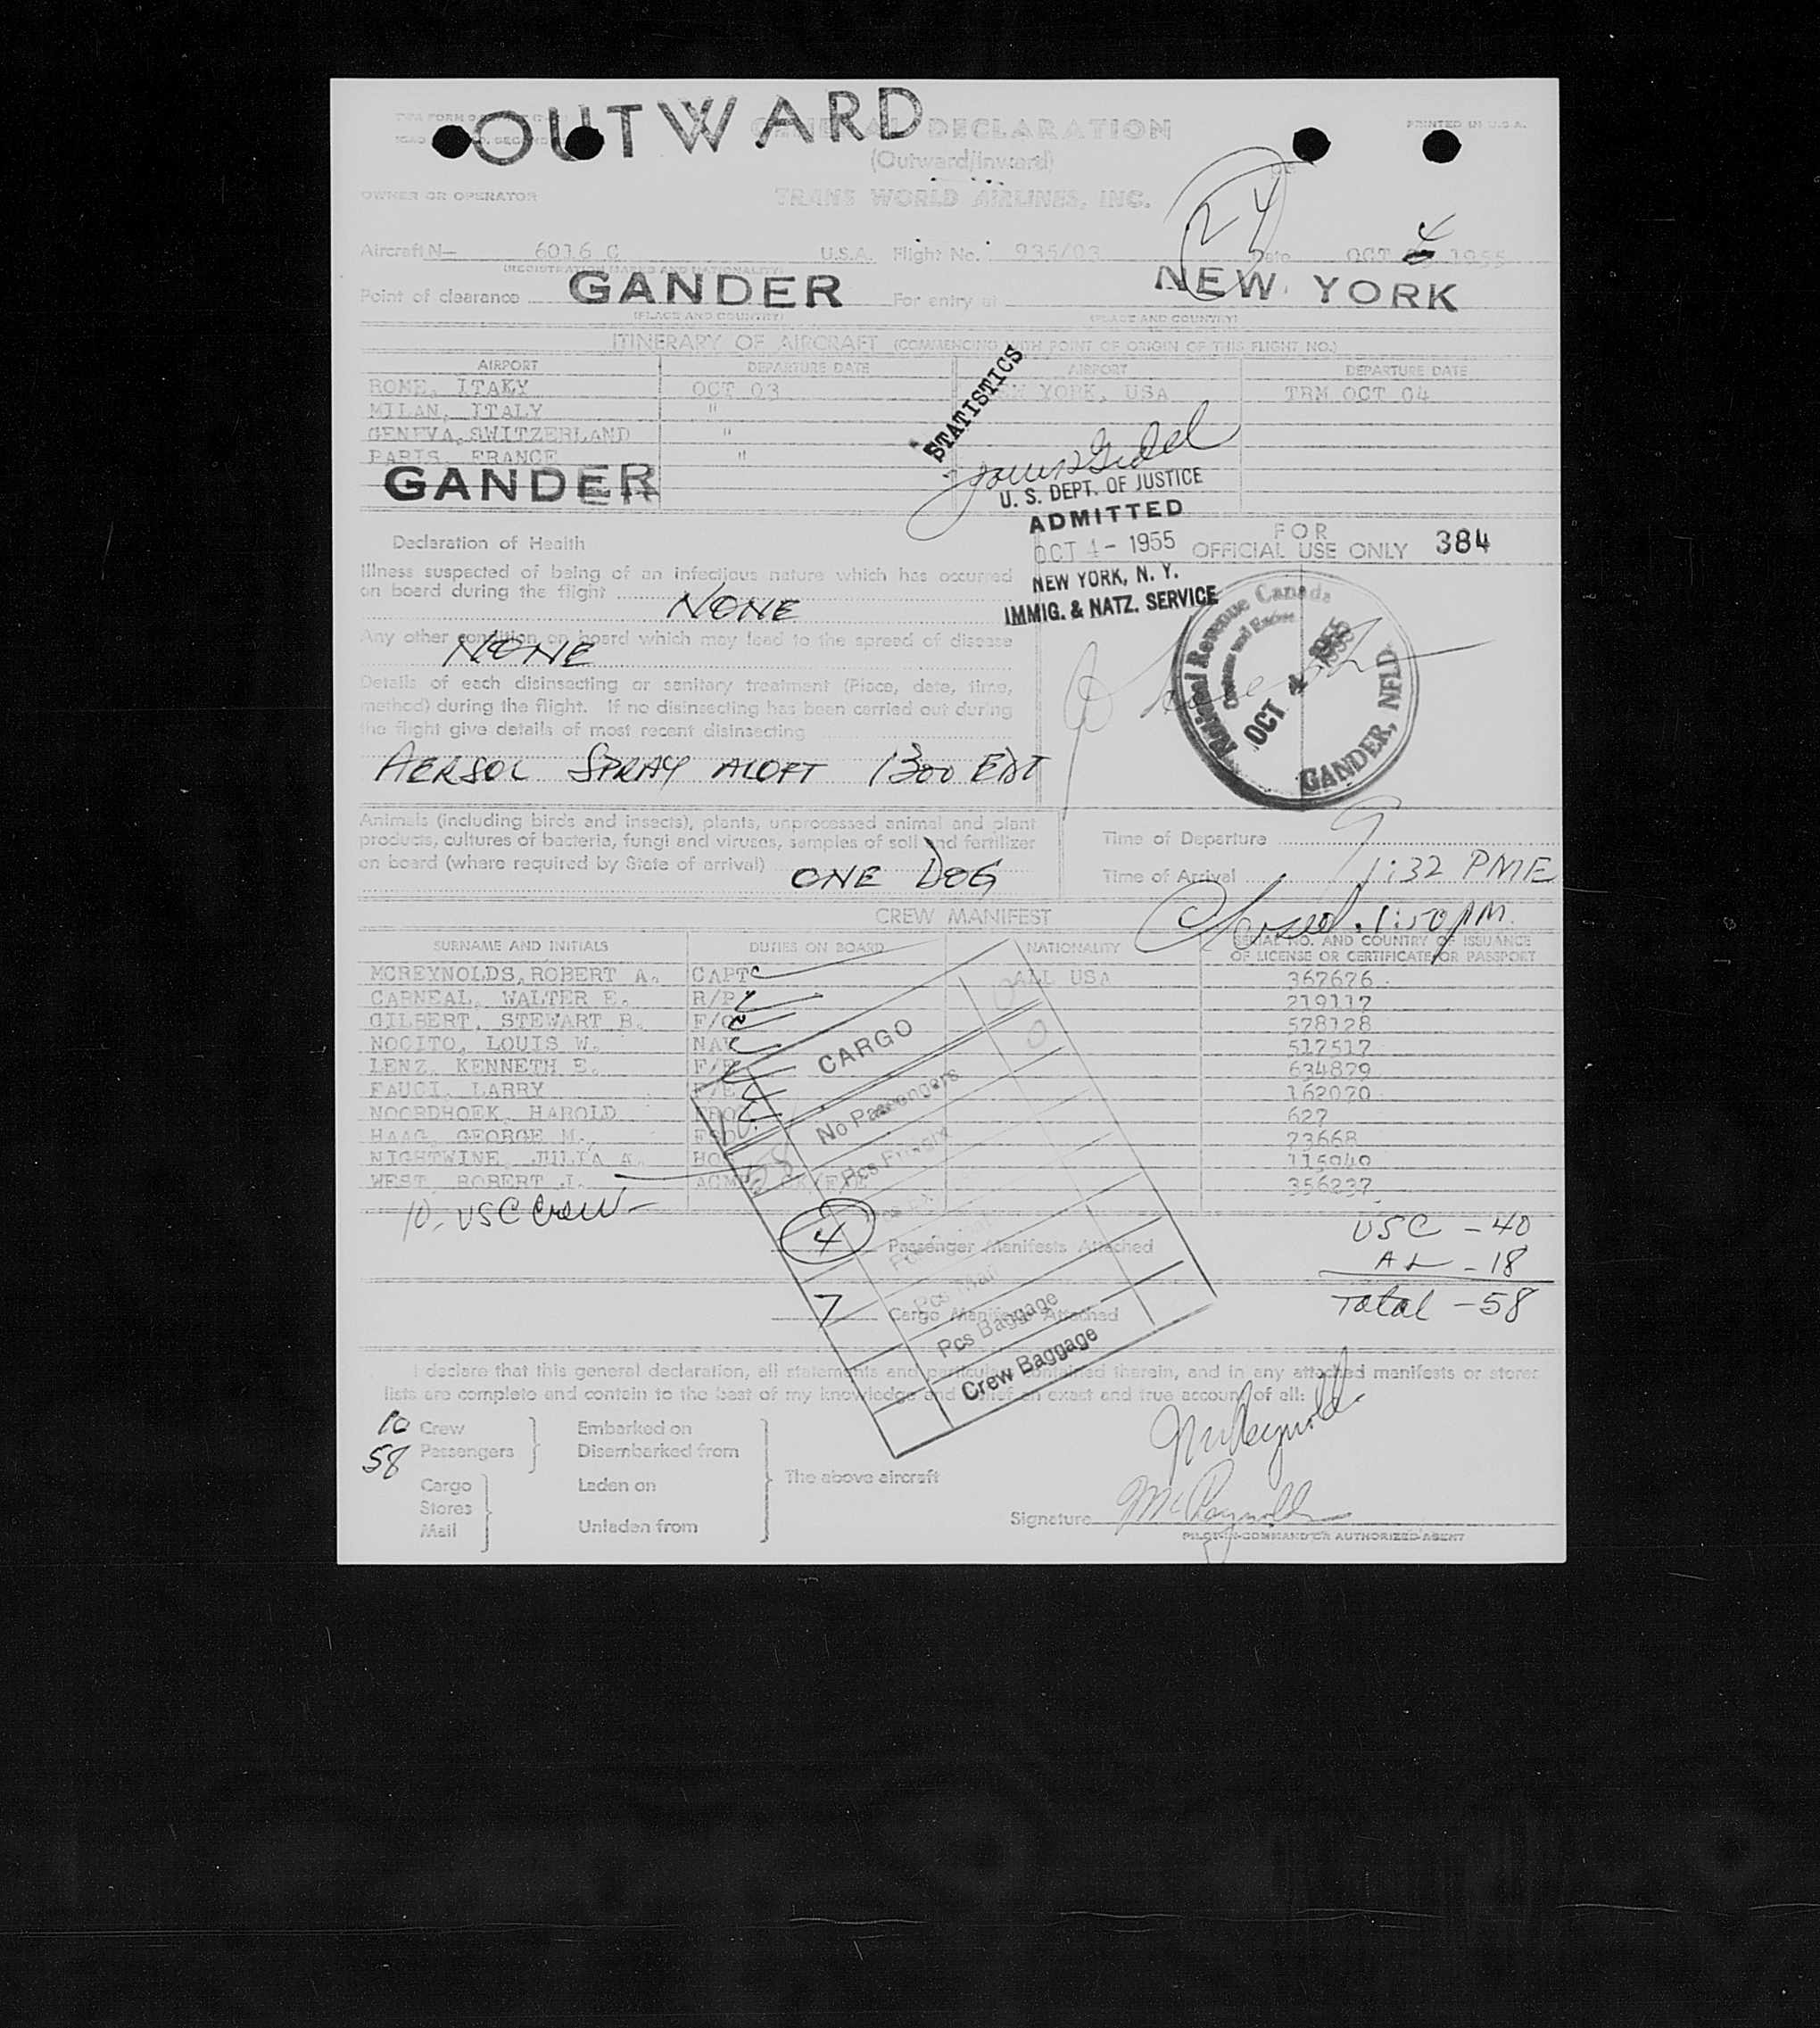 OUTWARD
GENERAL DECLARATION
PRINTED IN U.S.A.
(Outward/Inward)
OWNER OR OPERATOR
TRANS WORLD AIRLINES, INC.
24
Aircraft N— 6016 C U.S.A. Flight No. 935/03 Date OCT 4 1955
(REGISTRATION MARKS AND NATIONALITY)
Point of clearance GANDER For entry at NEW YORK
(PLACE AND COUNTRY) (PLACE AND COUNTRY)
ITINERARY OF AIRCRAFT (COMMENCING WITH POINT OF ORIGIN OF THIS FLIGHT NO.)
AIRPORT DEPARTURE DATE AIRPORT DEPARTURE DATE
ROME, ITAKY OCT 03 NEW YORK, USA TRM OCT 04
MILAN, ITALY "
GENEVA, SWITZERLAND "
PARIS, FRANCE "
GANDER
STATISTICS
U. S. DEPT. OF JUSTICE
ADMITTED
OCT 4 - 1955
NEW YORK, N. Y.
IMMIG. & NATZ. SERVICE
FOR
OFFICIAL USE ONLY 384
Declaration of Health
Illness suspected of being of an infectious nature which has occurred
on board during the flight
NONE
Any other condition on board which may lead to the spread of disease
NONE
Details of each disinsecting or sanitary treatment (Place, date, time,
method) during the flight. If no disinsecting has been carried out during
the flight give details of most recent disinsecting
AERSOL SPRAY ALOFT 1300 EDT
National Revenue Canada
Customs and Excise
OCT 4 1955
GANDER, NFLD.
Animals (including birds and insects), plants, unprocessed animal and plant
products, cultures of bacteria, fungi and viruses, samples of soil and fertilizer
on board (where required by State of arrival)
ONE DOG
Time of Departure
Time of Arrival 1:32 PME
Closed. 1:50 PM.
CREW MANIFEST
SURNAME AND INITIALS DUTIES ON BOARD NATIONALITY SERIAL NO. AND COUNTRY OF ISSUANCE
OF LICENSE OR CERTIFICATE OR PASSPORT
MCREYNOLDS, ROBERT A. CAPT ALL USA 367676
CARNEAL, WALTER E. R/P 219117
GILBERT, STEWART B. F/O 578128
NOCITO, LOUIS W. NAV 517517
LENZ, KENNETH E. F/E 634879
FAUCI, LARRY F/E 162070
NOORDHOEK, HAROLD 627
HAAG, GEORGE M. 73668
NIGHTWINE, JULIA A. HOS 115949
WEST, ROBERT J. ACM 356237
10 - USC Crew -
CARGO
No Passengers
Pcs Mail
Pcs Baggage
Crew Baggage
4 Passenger Manifests Attached
7 Cargo Manifests Attached
USC - 40
AL - 18
Total - 58
I declare that this general declaration, all statements and particulars contained therein, and in any attached manifests or stores
lists are complete and contain to the best of my knowledge and belief an exact and true account of all:
10 Crew
58 Passengers
Embarked on
Disembarked from
Cargo
Stores
Mail
Laden on
Unladen from
The above aircraft
McReynolds
Signature McReynolds
PILOT-IN-COMMAND OR AUTHORIZED AGENT